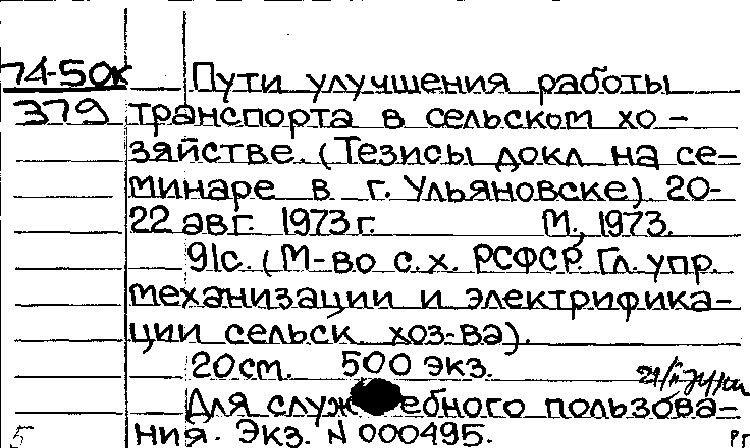 74-50к Пути улучшения работы
379 транспорта в сельском хо-
зяйстве. (Тезисы докл. на се-
минаре в г. Ульяновске). 20-
22 авг. 1973 г. М., 1973.
91с. (М-во с.х. РСФСР. Гл. упр.
механизации и электрифика-
ции сельск. хоз-ва).
20см. 500 экз.
Для служебного пользова-
5 ния. Экз. N 000495.